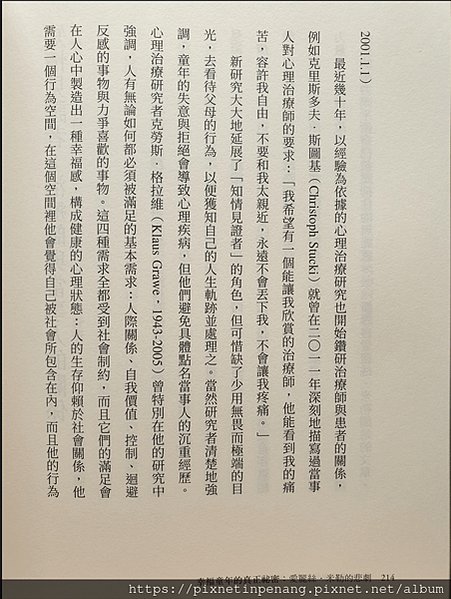 2001.1.1）
最近幾十年，以經驗為依據的心理治療研究也開始鑽研治療師與患者的關係，
例如克里斯多夫．斯圖基（Christoph Stucki）就曾在二〇一一年深刻地描寫過當事
人對心理治療師的要求：「我希望有一個能讓我欣賞的治療師，他能看到我的痛
苦，容許我自由，不要和我太親近，永遠不會丟下我，不會讓我疼痛。」
新研究大大地延展了「知情見證者」的角色，但可惜缺了少用無畏而極端的目
光，去看待父母的行為，以便獲知自己的人生軌跡並處理之。當然研究者清楚地強
調，童年的失意與拒絕會導致心理疾病，但他們避免具體點名當事人的沉重經歷。
心理治療研究者克勞斯．格拉維（Klaus Grawe，1943-2005）曾特別在他的研究中
強調，人有無論如何都必須被滿足的基本需求：人際關係、自我價值、控制、迴避
反感的事物與力爭喜歡的事物。這四種需求全都受到社會制約，而且它們的滿足會
在人心中製造出一種幸福感，構成健康的心理狀態：人的生存仰賴於社會關係，他
需要一個行為空間，在這個空間裡他會覺得自己被社會所包含在內，而且他的行為
幸福童年的真正祕密：愛麗絲．米勒的悲劇 214
https://pixnetinpenang.pixnet.net/blog